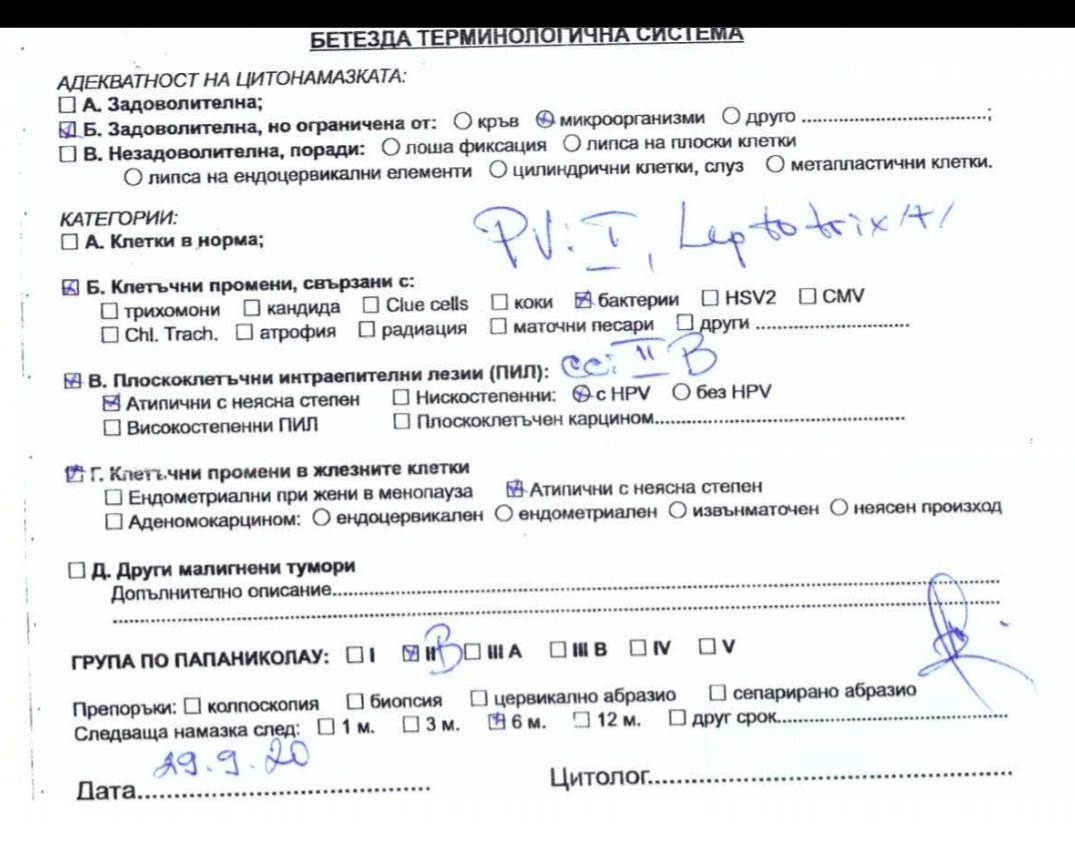 БЕТЕЗДА ТЕРМИНОЛОГИЧНА СИСТЕМА
АДЕКВАТНОСТ НА ЦИТОНАМАЗКАТА:
☐ А. Задоволителна;
☑ Б. Задоволителна, но ограничена от: ○ кръв ⊗ микроорганизми ○ друго ....................................;
☐ В. Незадоволителна, поради: ○ лоша фиксация ○ липса на плоски клетки
○ липса на ендоцервикални елементи ○ цилиндрични клетки, слуз ○ метапластични клетки.
КАТЕГОРИИ:
PV: I, Leptotrix /+/
☐ А. Клетки в норма;
☒ Б. Клетъчни промени, свързани с:
☐ трихомони ☐ кандида ☐ Clue cells ☐ коки ☒ бактерии ☐ HSV2 ☐ CMV
☐ Chl. Trach. ☐ атрофия ☐ радиация ☐ маточни песари ☐ други ..............................
☒ В. Плоскоклетъчни интраепителни лезии (ПИЛ): CC: II B
☒ Атипични с неясна степен ☐ Нискостепенни: ⊗ с HPV ○ без HPV
☐ Високостепенни ПИЛ ☐ Плоскоклетъчен карцином..................................................
☒ Г. Клетъчни промени в жлезните клетки
☐ Ендометриални при жени в менопауза ☒ Атипични с неясна степен
☐ Аденомокарцином: ○ ендоцервикален ○ ендометриален ○ извънматочен ○ неясен произход
☐ Д. Други малигнени тумори
Допълнително описание....................................................................................
....................................................................................
ГРУПА ПО ПАПАНИКОЛАУ: ☐ I ☒ II B ☐ III A ☐ III B ☐ IV ☐ V
Препоръки: ☐ колпоскопия ☐ биопсия ☐ цервикално абразио ☐ сепарирано абразио
Следваща намазка след: ☐ 1 м. ☐ 3 м. ☒ 6 м. ☐ 12 м. ☐ друг срок..............................................
29.9.20
Дата...................................... Цитолог...............................................